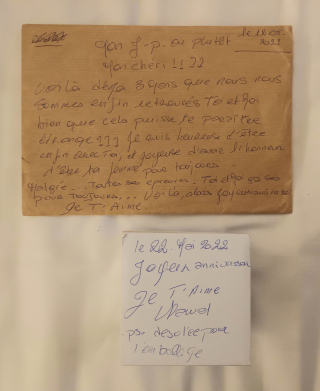 mon J-p. ou plutot
mon chéri !!
voilà déja 3 mois que nous nous
sommes enfin retrouvés toi et moi
bien que cela puisse te paraître
étrange je suis heureuse d'être
enfin avec toi, et joyeuse d'avoir l'honneur
d'être ta femme pour toujours
malgré toutes ses épreuves. Toi et moi
pour toujours... Voilà alors
Je T'Aime
le 22. Mai 2022
Joyeux anniversaire
Je T'Aime
ps: désolée pour
l'emballage